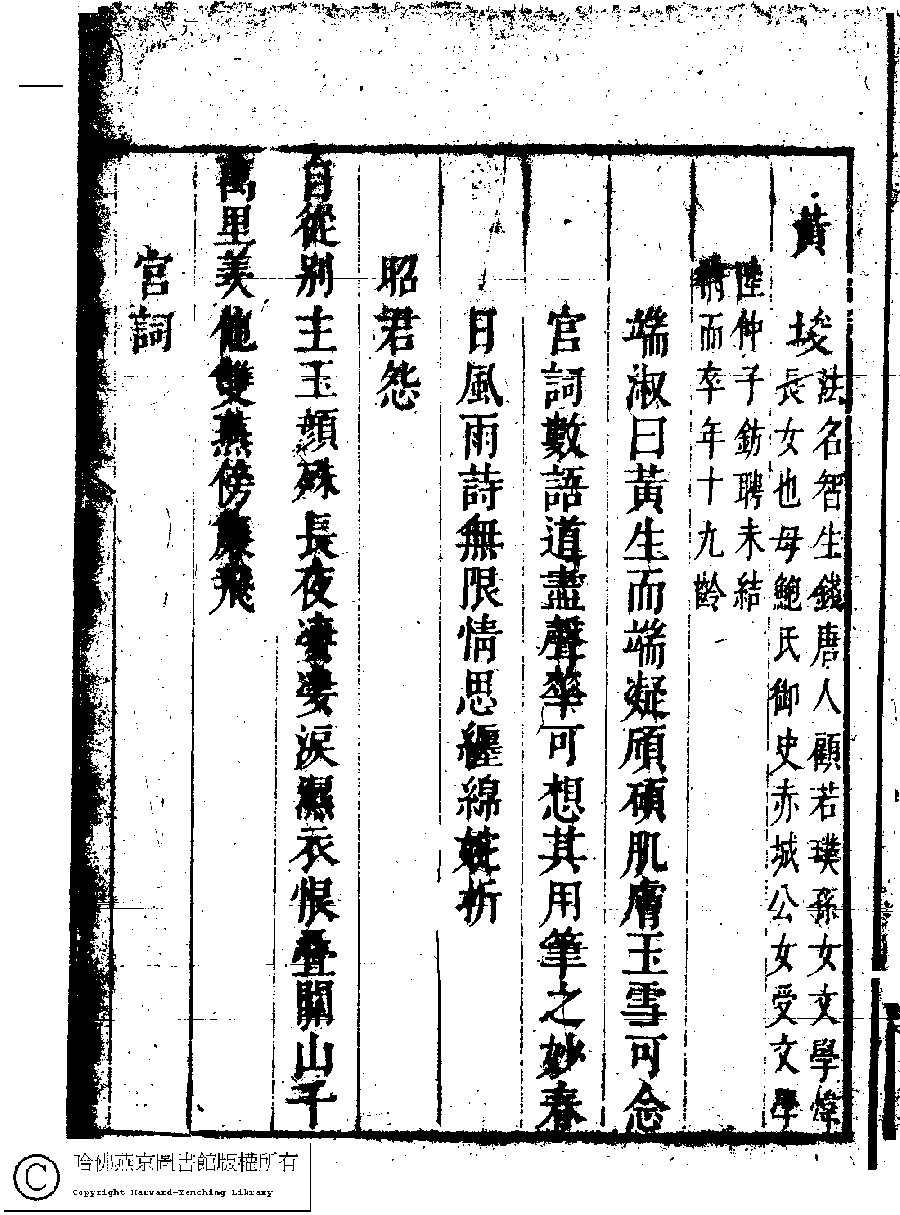 黃埈法名智生錢唐人顧若璞孫女文學煒
長女也母鮑氏御史赤城公女受文學
陸仲子鈁聘未結
褵而卒年十九齡
端淑曰黃生而端凝頎碩肌膚玉雪可念
宮詞數語道盡聲華可想其用筆之妙春
日風雨詩無限情思纏綿婉析
昭君怨
自從別主玉顏殊長夜凄凄淚濕衣恨疊關山千
萬里羨他雙燕傍簾飛
宮詞
哈佛燕京圖書館版權所有
Copyright Harvard-Yenching Library